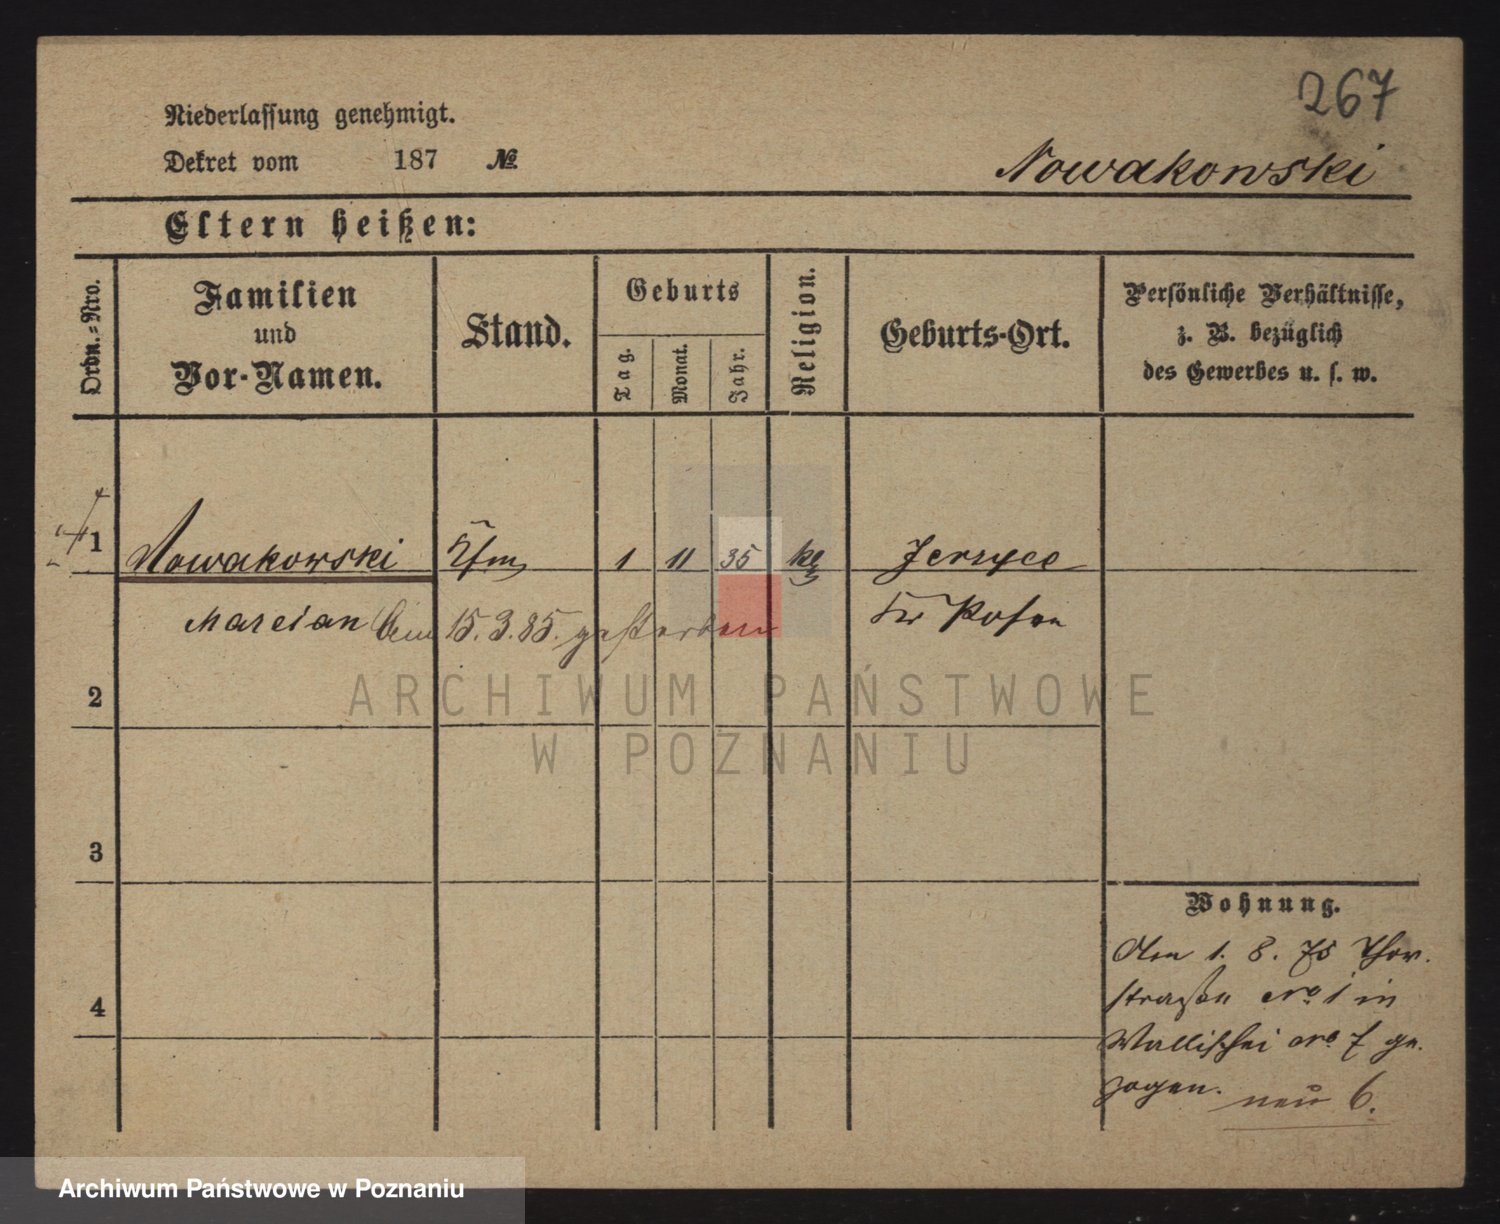 267
Niederlassung genehmigt.
Dekret vom 187 №
Nowakowski
Eltern heißen:
Ordn.=Nro.
Familien
und
Vor-Namen.
Stand.
Geburts
Tag.
Monat.
Jahr.
Religion.
Geburts-Ort.
Persönliche Verhältnisse,
z. B. bezüglich
des Gewerbes u. s. w.
1 Nowakowski 1 11 35 Jerzyce
Marcian 15. 3. 85. gestorben Kr Posen
2
3
4
Wohnung.
Den 1. 8. 75 Thor-
straße No 1 in
Wallischei No 7 ge-
zogen. neu 6.
ARCHIWUM PAŃSTWOWE
W POZNANIU
Archiwum Państwowe w Poznaniu